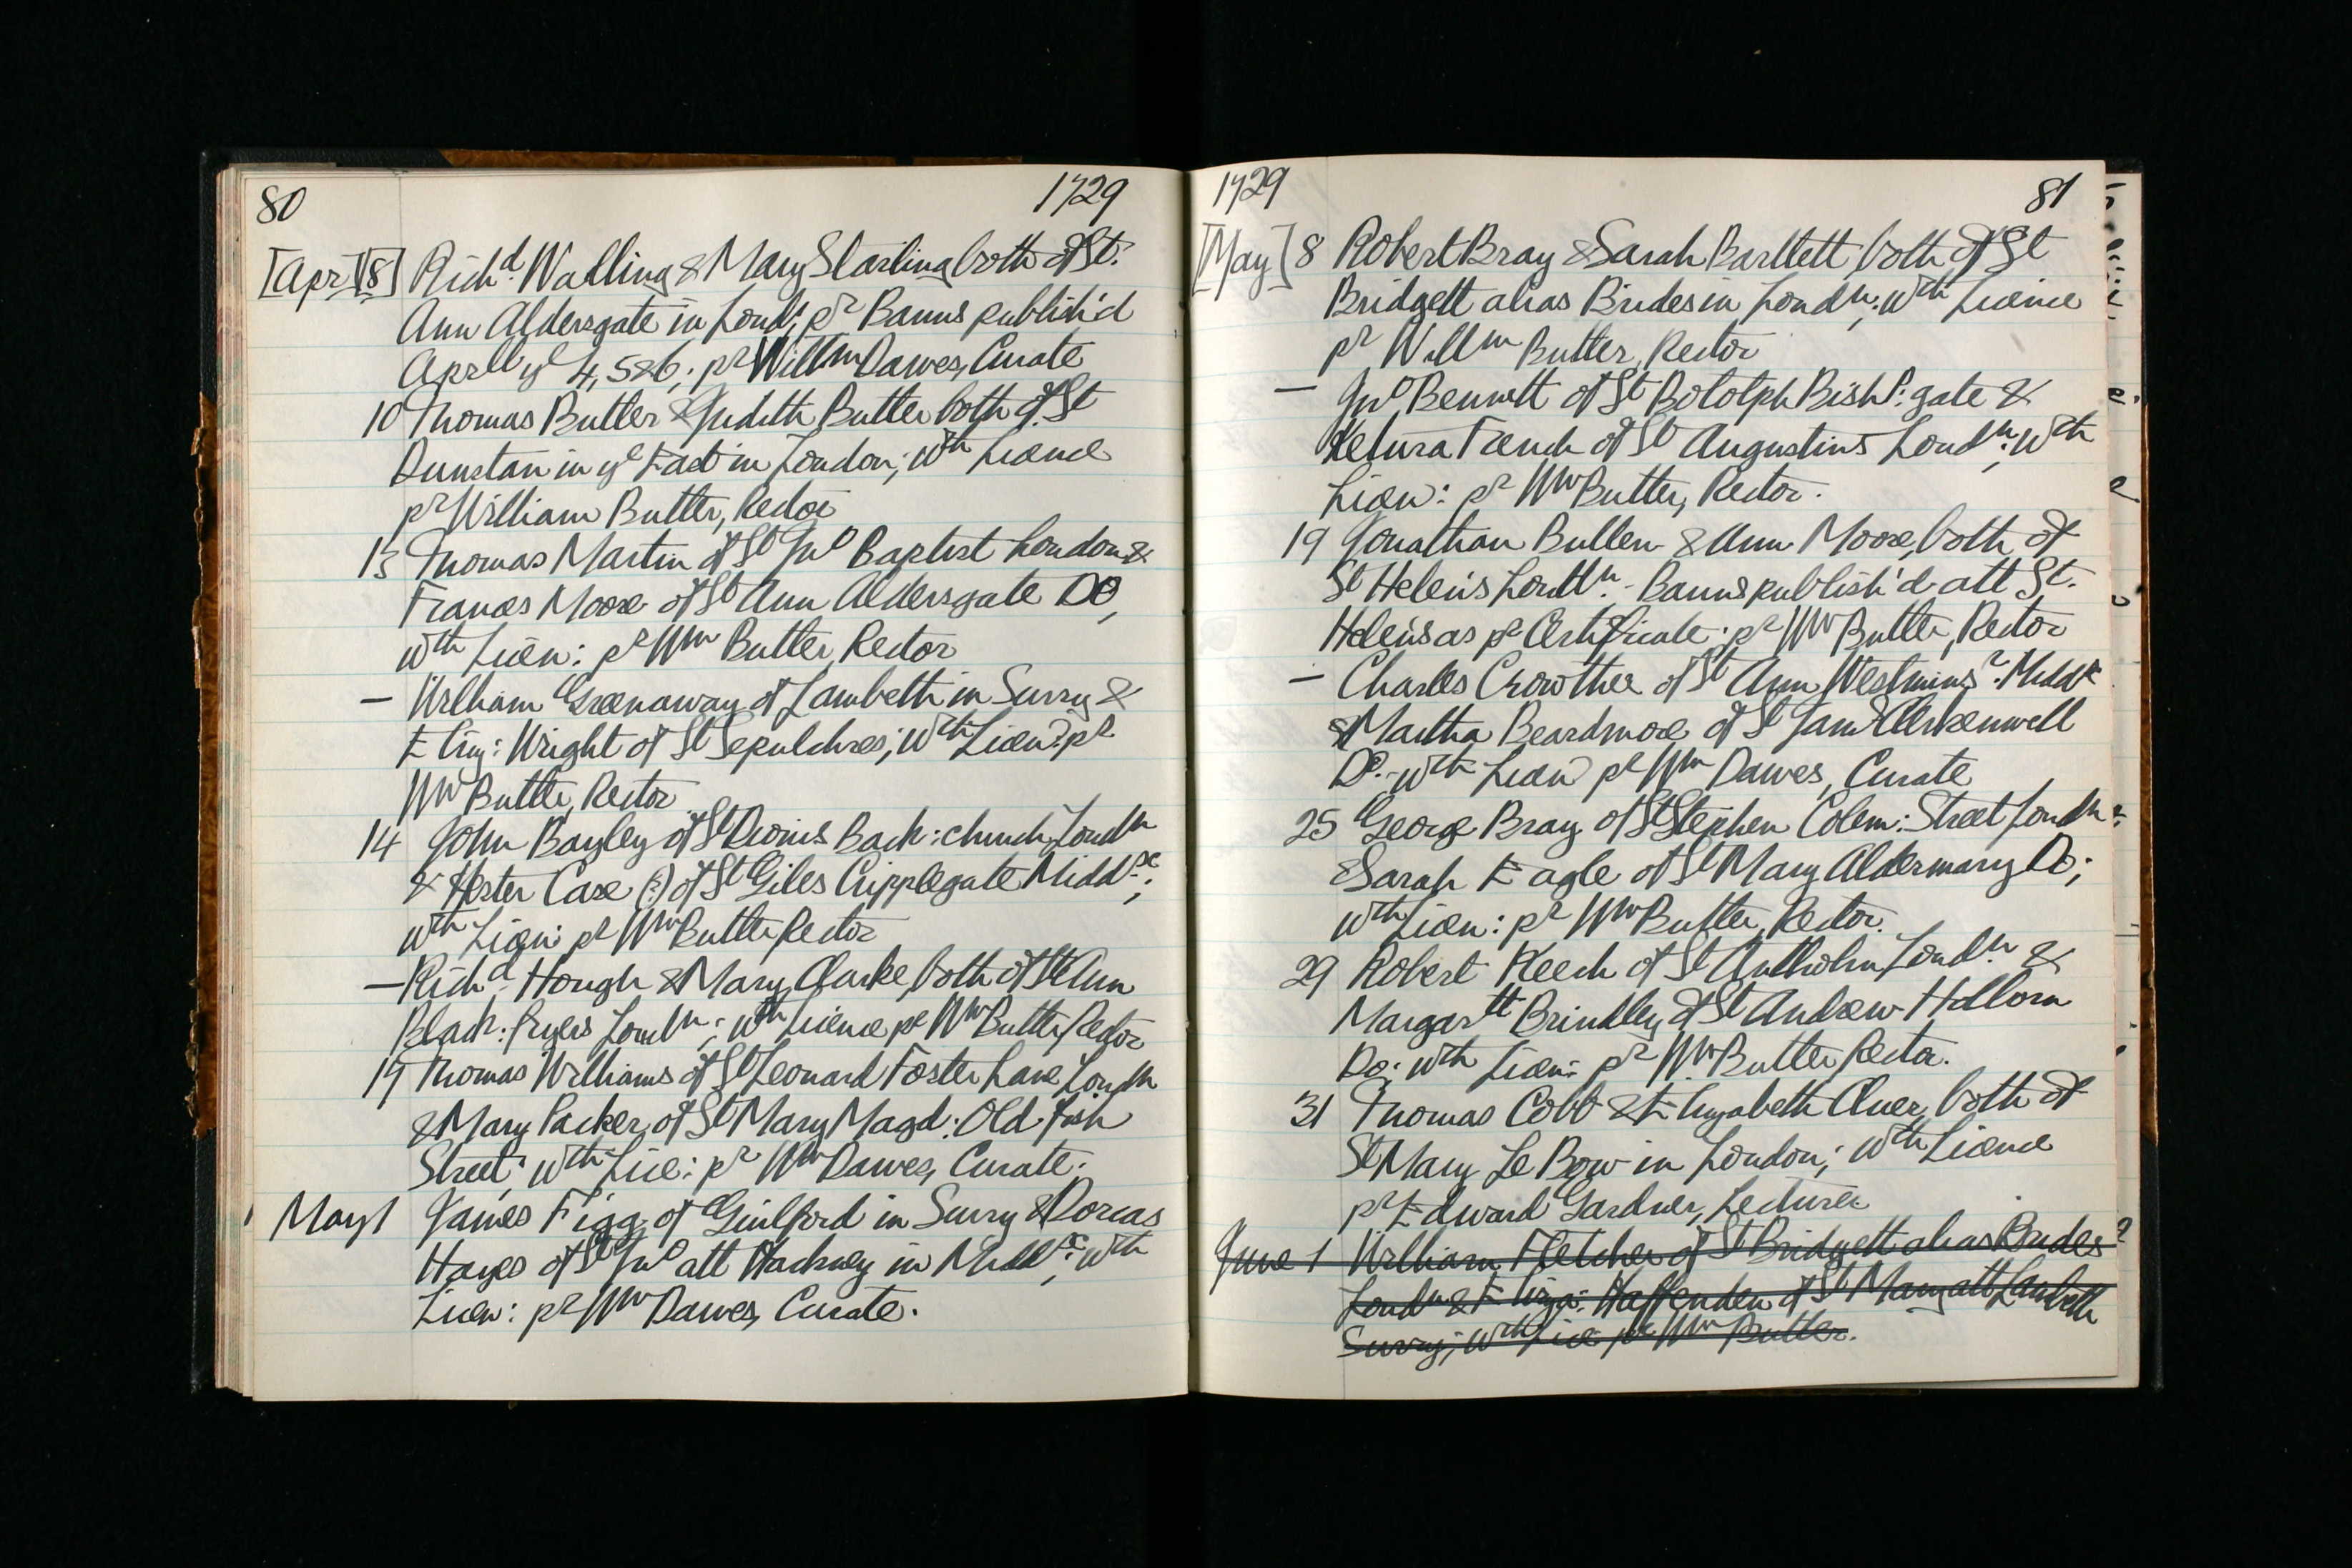 80 1729
[Apr][8] Richd. Walling & Mary Starling both of St.
Ann Aldersgate in Lond; pr Banns publish'd
Aprll ye 4, 5 & 6; pr Willm Dawes, Curate
10 Thomas Butler & Judith Butler both of St
Dunstan in ye East in London; wth Licence
pr William Butler, Rector
13 Thomas Martin of St Jno Baptist London &
Frances Moore of St Ann Aldersgate Do,
wth Licen: pr Wm Butler Rector
— William Greenaway of Lambeth in Surry &
Eliz: Wright of St Sepulchres; wth Licen: pr
Wm Butler, Rector
14 John Bayley of St Dionis Back: church, Londn
& Hester Case (?) of St Giles Cripplegate Middsx;
wth Licen: pr Wm Butler Rector
— Richd. Hough & Mary Clarke, both of St Ann
Black: fryers Londn; wth Licence pr Wm Butler Rector
19 Thomas Williams of St Leonard Foster Lane Londn
& Mary Packer of St Mary Magd: Old fish
Street; wth Lice: pr Wm Dawes, Curate.
May 1 James Figg of Guilford in Surry & Dorcas
Hayes of St Jno att Hackney in Middsx; wth
Licen: pr Wm Dawes, Curate.
1729 81
[May] 8 Robert Bray & Sarah Bartlett, both of St
Bridgett alias Brides in Londn; wth Licence
pr Willm Butler, Rector
— Jno Bennett of St Botolph Bishp: gate &
Ketura French of St Augustins Londn; wth
Licen: pr Wm Butler, Rector.
19 Jonathan Bullen & Ann Moore, both of
St Helen's Londn. - Banns publish'd att St.
Helen's as pr Certificate: pr Wm Butler, Rector
— Charles Crowther of St Ann Westminsr. Middx
& Martha Beardmore of St Jams Clerkenwell
Do. - wth Licen pr Wm Dawes, Curate
25 George Bray of St Stephen Colem: Street Londn:
& Sarah Eagle of St Mary Aldermary Do;
wth Licen: pr Wm Butler, Rector.
29 Robert Keech of St Antholin Londn. &
Margartt Brindley of St Andrew Holborn
Do: wth Licen: pr Wm Butler Rector.
31 Thomas Cobb & Elizabeth Cluer, both of
St Mary Le Bow in London; wth Licence
pr Edward Gardner, Lecturer
June 1 William Fletcher of St Bridgett alias Brides
Londn & Eliza: Haffenden of St Mary att Lambeth
Surry; wth Lice pr Wm Butler.